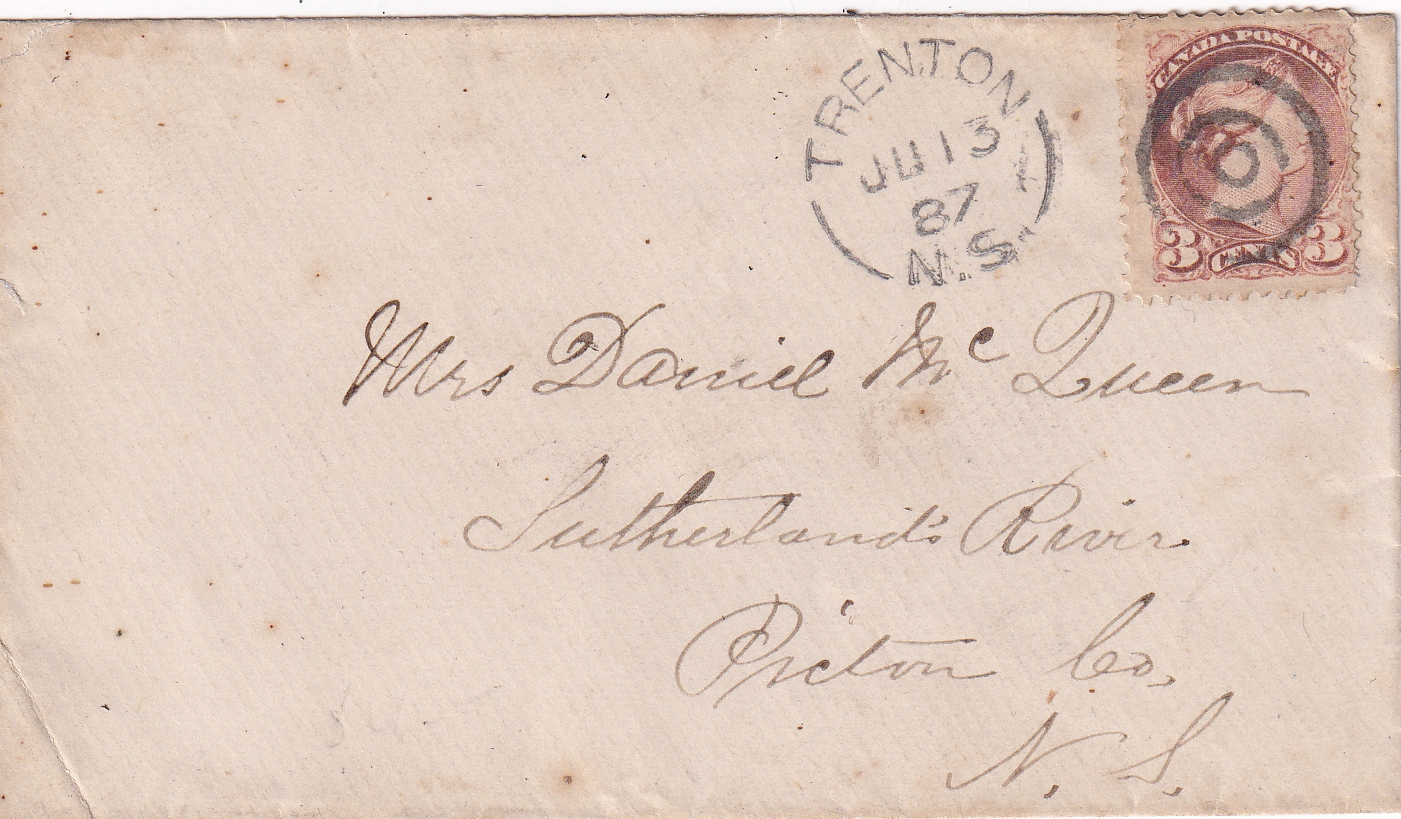 TRENTON
JU 13
87
N.S.
CANADA POSTAGE
3 CENTS 3
Mrs Daniel McQueen
Sutherland's River
Pictou Co.
N. S.